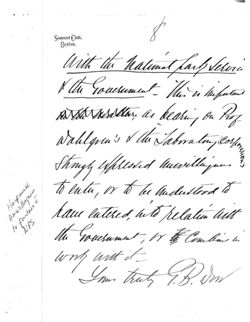 Somerset Club,
Boston.
8
with the National Park Service
& the Government. This is important
as bearing on Prof.
Dahlgren's & the Laboratory Corp
strongly expressed unwillingness
to enter, or to be understood to
have entered, into relation with
the Government, or to combine in
work with it.
Yours truly G. B. Dorr